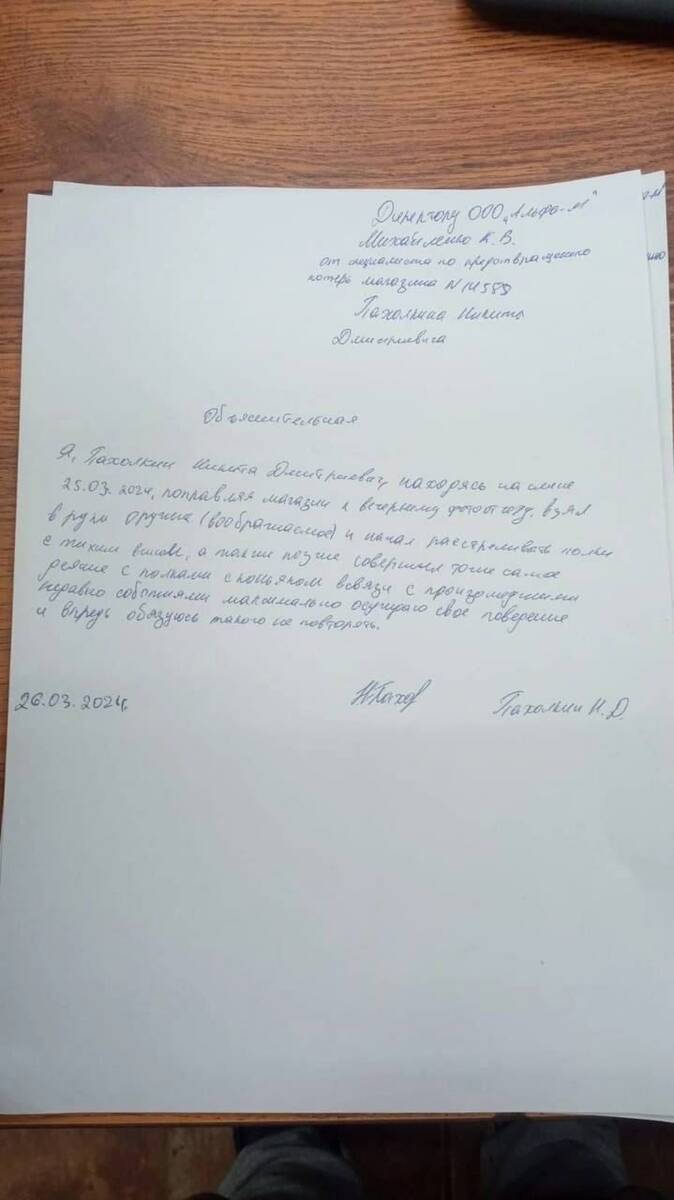 Директору ООО „Альфа-М"
Михайленко К. В.
от специалиста по предотвращению
потерь магазина N 14589
Пахолкина Никиты
Дмитриевича
Объяснительная
Я, Пахолкин Никита Дмитриевич, находясь на смене
25.03.2024, поправляя магазин к вечернему фотоотчёту, взял
в руки оружие (воображаемое) и начал расстреливать полки
с тихим вином, а также позже совершил тоже самое
деяние с полками с коньяком всвязи с произошедшими
недавно событиями максимально осуждаю свое поведение
и впредь обязуюсь такого не повторять.
26.03.2024г.
Пахолкин Н. Д.